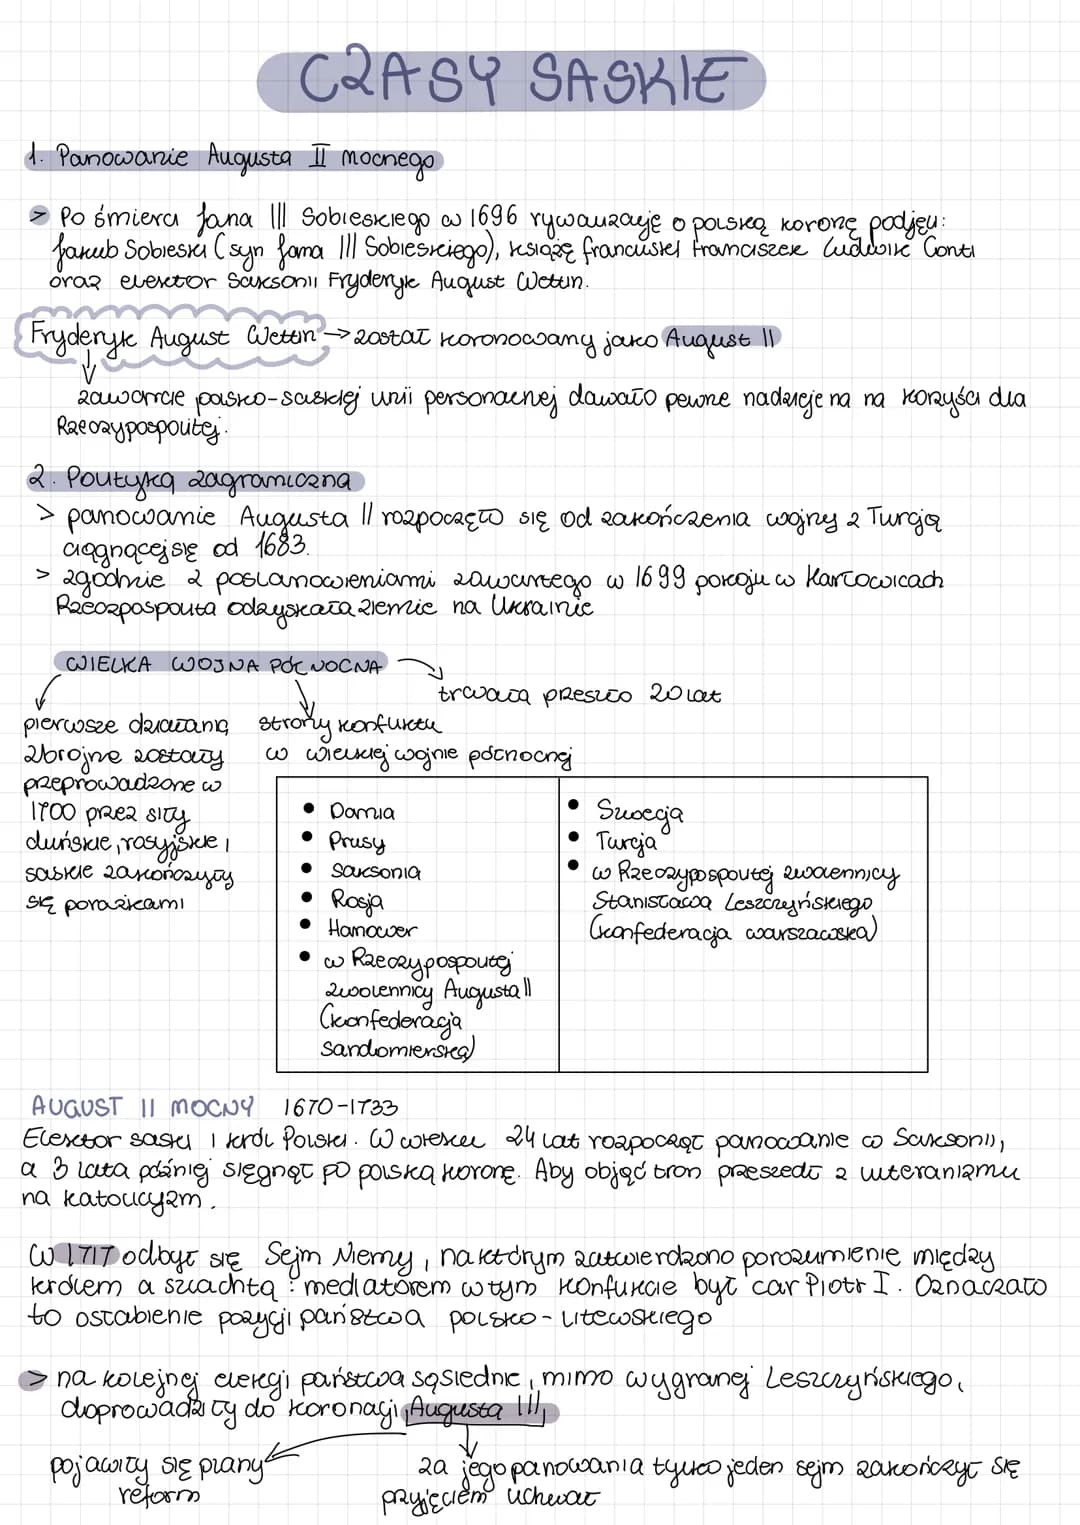 CZASY SASKIE
1. Panowanie Augusta II mocnego
> Po śmierci Jana III Sobieskiego w 1696 rywalizację o polską koronę podjęli:
Jakub Sobieski (syn Jana III Sobieskiego), książę francuski Franciszek Ludwik Conti
oraz elektor Saksonii Fryderyk August Wettin.
Fryderyk August Wettin → został koronowany jako August II
zawarcie polsko-saskiej unii personalnej dawało pewne nadzieje na na korzyści dla
Rzeczypospolitej.
2. Polityka zagraniczna
> panowanie Augusta II rozpoczęło się od zakończenia wojny z Turcją
ciągnącej się od 1683.
> zgodnie z postanowieniami zawartego w 1699 pokoju w Karłowicach
Rzeczpospolita odzyskała ziemie na Ukrainie
WIELKA WOJNA PÓŁNOCNA
trwała przeszło 20 lat
pierwsze działania
zbrojne zostały
przeprowadzone w
1700 przez siły
duńskie, rosyjskie i
saskie zakończyły
się porażkami
strony konfliktu
w wielkiej wojnie północnej
• Dania
• Prusy
• Saksonia
• Rosja
• Hanower
• w Rzeczypospolitej
zwolennicy Augusta II
(konfederacja
sandomierska)
• Szwecja
• Turcja
• w Rzeczypospolitej zwolennicy
Stanisława Leszczyńskiego
(konfederacja warszawska)
AUGUST II MOCNY 1670-1733
Elektor saski i król Polski. W wieku 24 lat rozpoczął panowanie w Saksonii,
a 3 lata później sięgnął po polską koronę. Aby objąć tron przeszedł z luteranizmu
na katolicyzm.
W 1717 odbył się Sejm Niemy, na którym zatwierdzono porozumienie między
królem a szlachtą : mediatorem w tym konflikcie był car Piotr I. Oznaczało
to osłabienie pozycji państwa polsko-litewskiego
> na kolejnej elekcji państwa sąsiednie, mimo wygranej Leszczyńskiego,
doprowadziły do koronacji Augusta III,
pojawiły się plany
reform
za jego panowania tylko jeden sejm zakończył się
przyjęciem uchwał